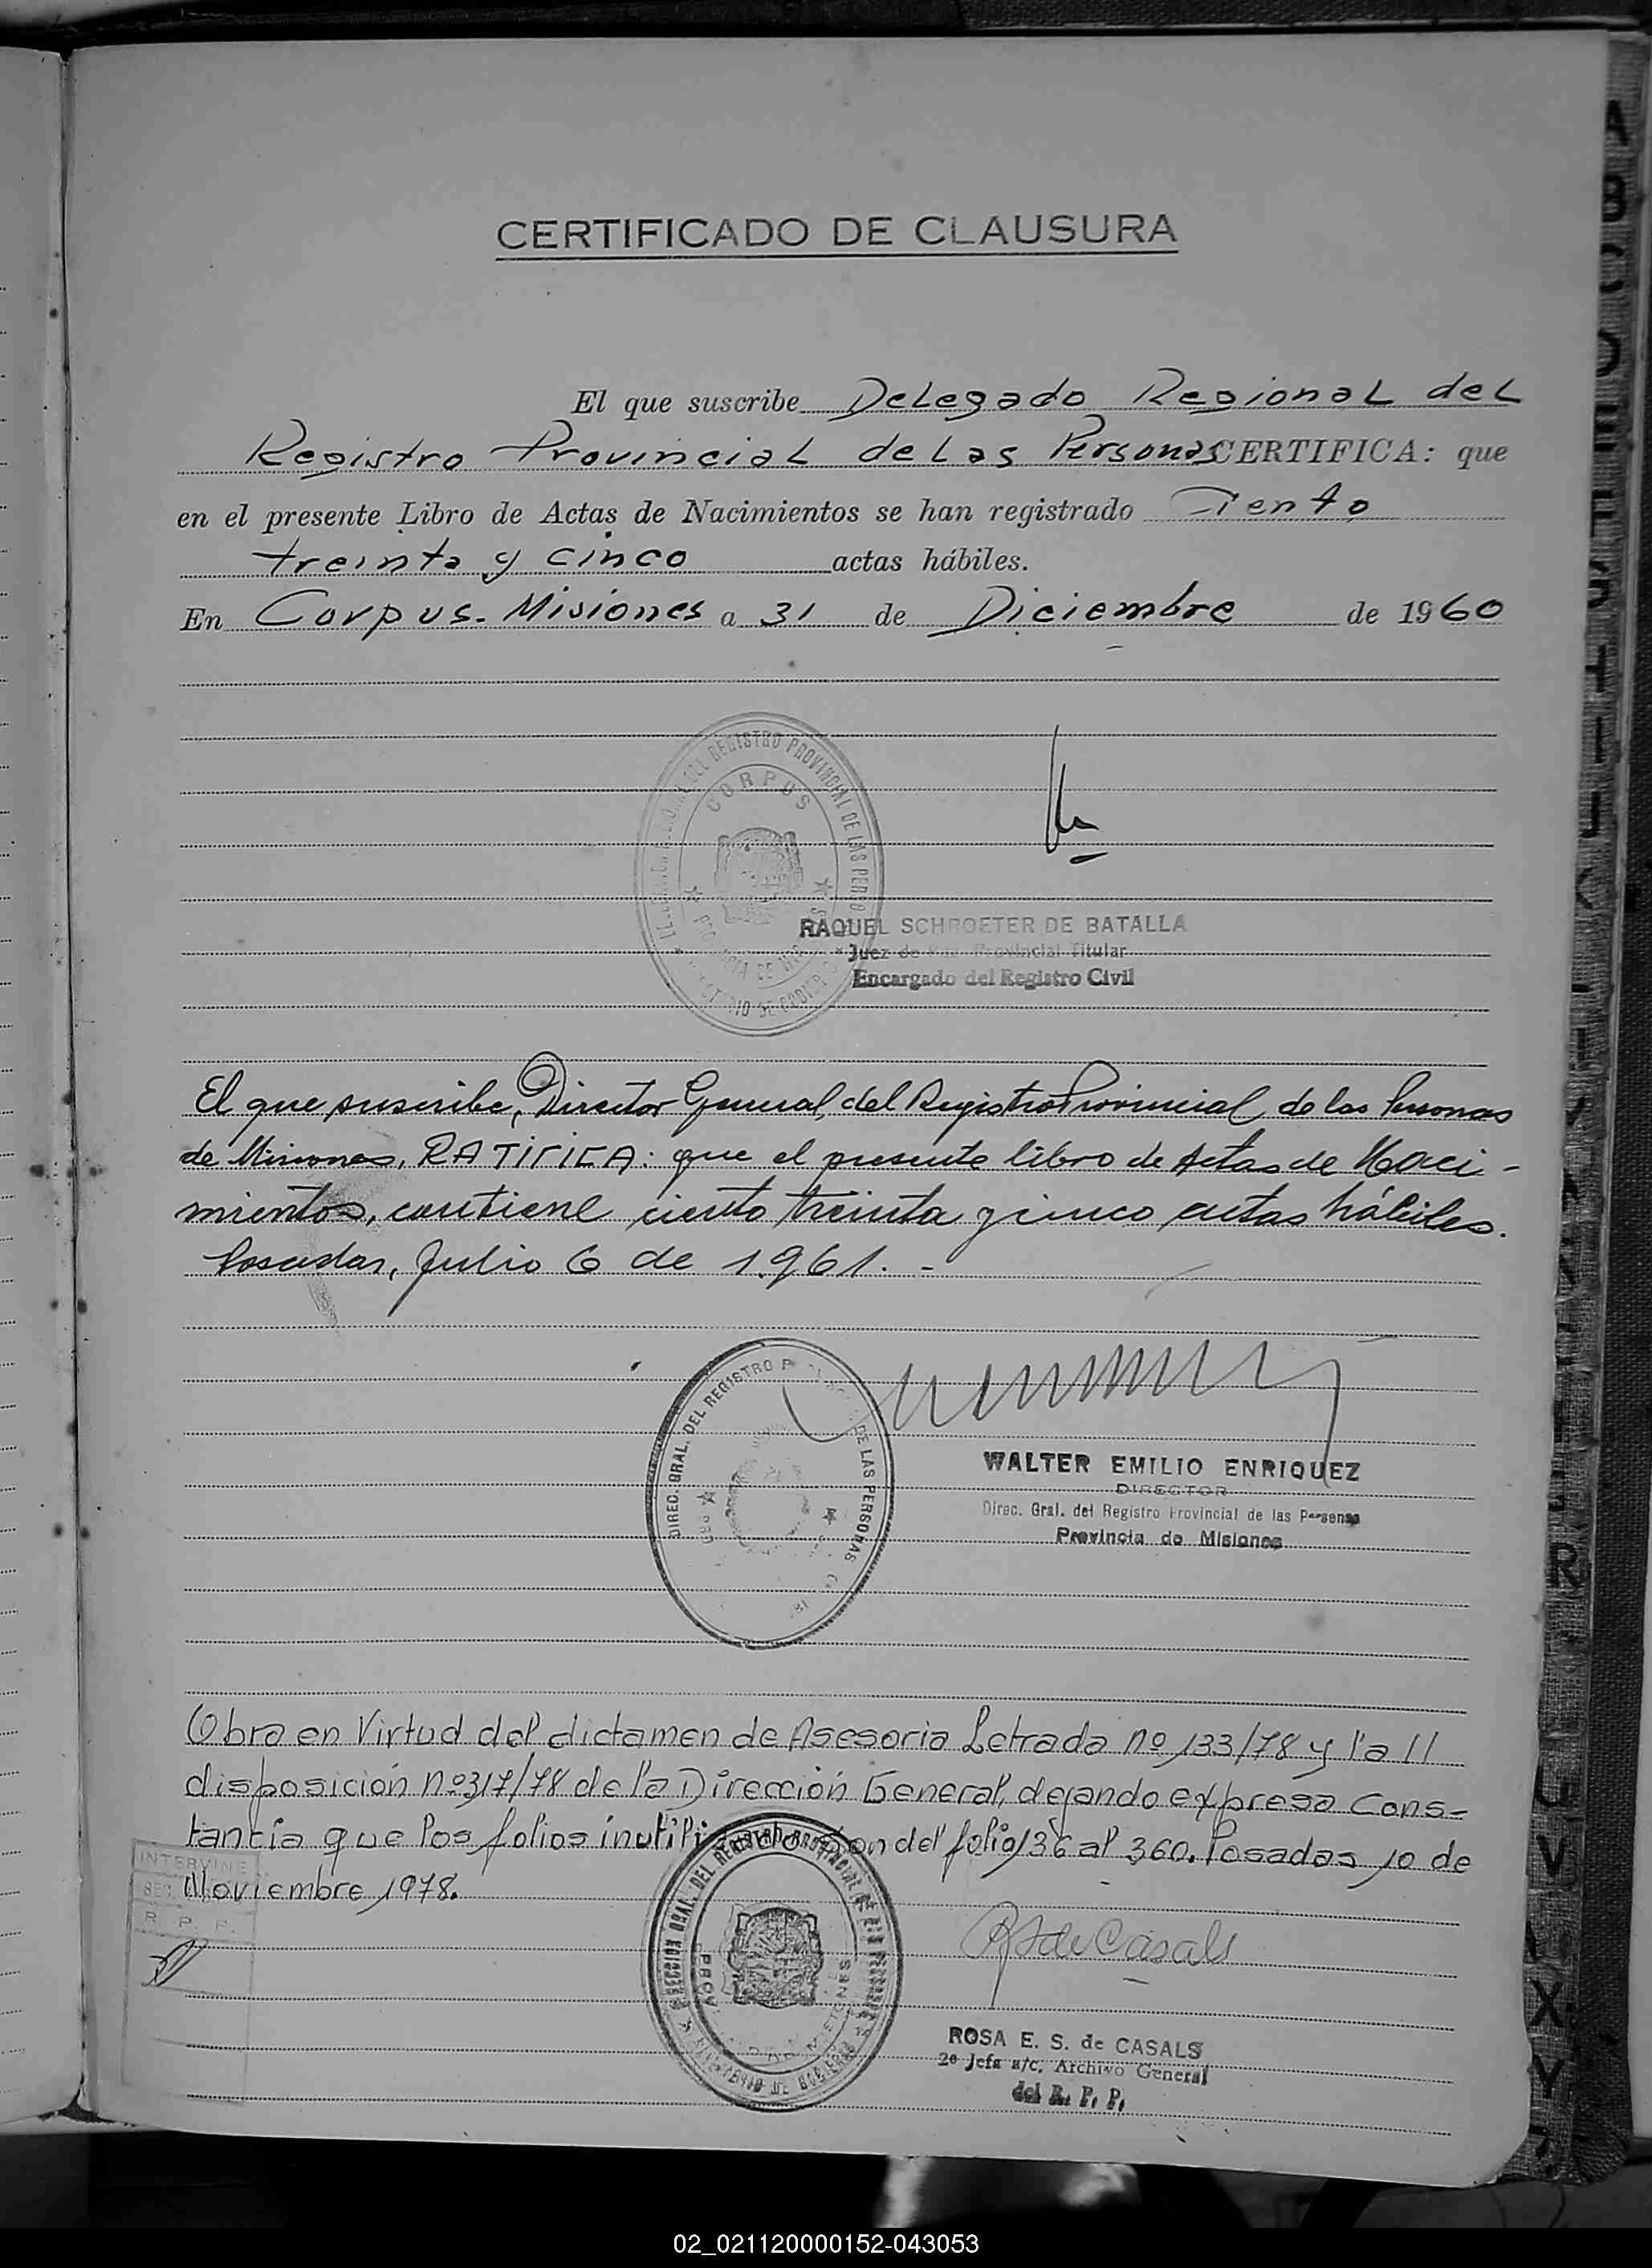 CERTIFICADO DE CLAUSURA
El que suscribe Delegado Regional del
Registro Provincial de Las Personas CERTIFICA: que
en el presente Libro de Actas de Nacimientos se han registrado Ciento
treinta y cinco actas hábiles.
En Corpus-Misiones a 31 de Diciembre de 1960
REGISTRO PROVINCIAL DE LAS PERSO
CORPUS
RAQUEL SCHROETER DE BATALLA
Juez de Paz Provincial Titular
Encargado del Registro Civil
El que suscribe, Director General, del Registro Provincial de las Personas
de Misiones, RATIFICA: que el presente libro de Actas de Naci-
mientos, contiene ciento treinta y cinco actas hábiles.
Posadas, Julio 6 de 1.961.-
DIREC. GRAL. DEL REGISTRO P DE LAS PERSONAS
WALTER EMILIO ENRIQUEZ
DIRECTOR
Direc. Gral. del Registro Provincial de las Personas
Provincia de Misiones
Obra en Virtud del dictamen de Asesoria Letrada nº 133/78 y la //
disposición nº 317/78 de la Dirección General, dejando expresa Cons-
tancia que los folios inutilizados son del folio 136 al 360. Posadas 10 de
Noviembre 1978.
INTERVINE
R. P. P.
DIRECCION GRAL. DEL REGISTRO PROVINCIAL DE LAS PERSONAS
MINISTERIO DE GOBIERNO
PROV. DE MISIONES
R S de Casals
ROSA E. S. de CASALS
2º Jefa a/c. Archivo General
del R. P. P.
A
B
C
D
E
R
U
V
X
Y
Z
02_021120000152-043053